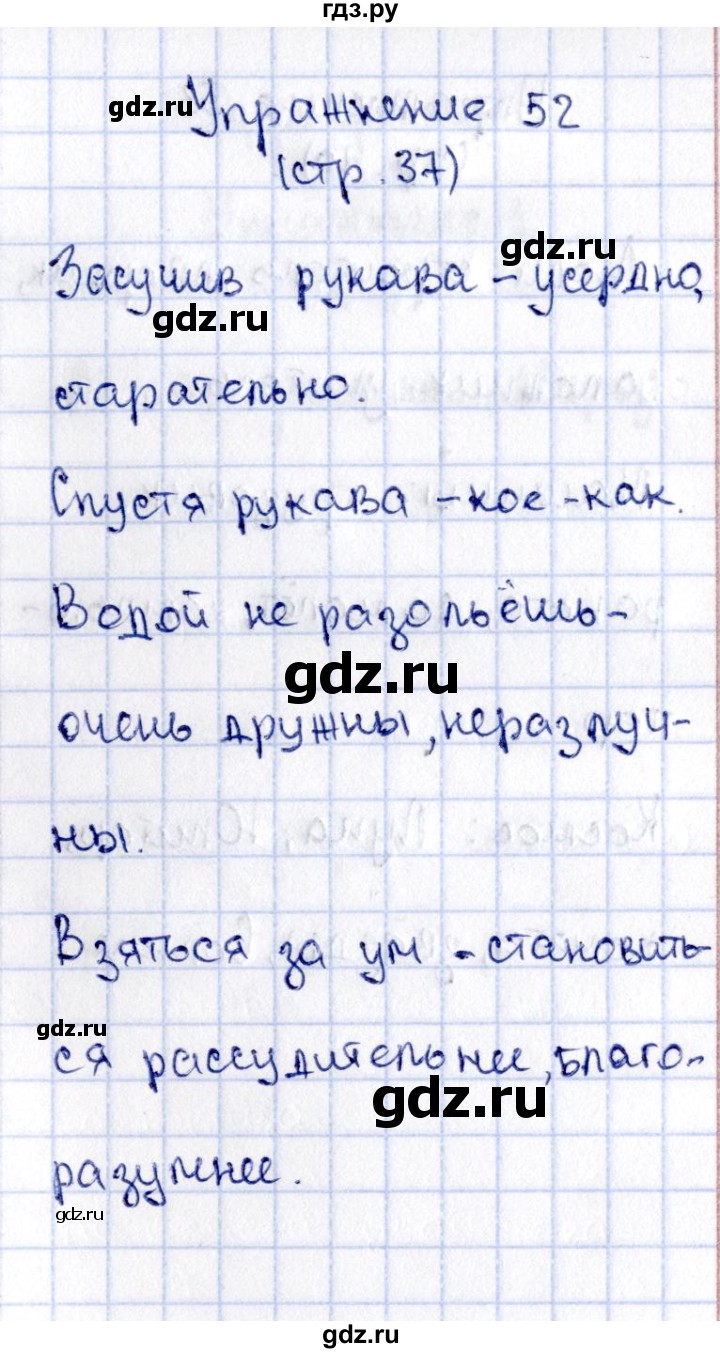 гдз.ру
gdz.ru
Упражнение 52
(стр. 37)
gdz.ru
Засучив рукава – усердно,
gdz.ru
старательно.
Спустя рукава – кое-как.
Водой не разольёшь-
gdz.ru
очень дружны, неразлуч-
ны.
Взяться за ум - становить-
gdz.ru
ся рассудительнее, благо-
gdz.ru
разумнее.
gdz.ru
gdz.ru